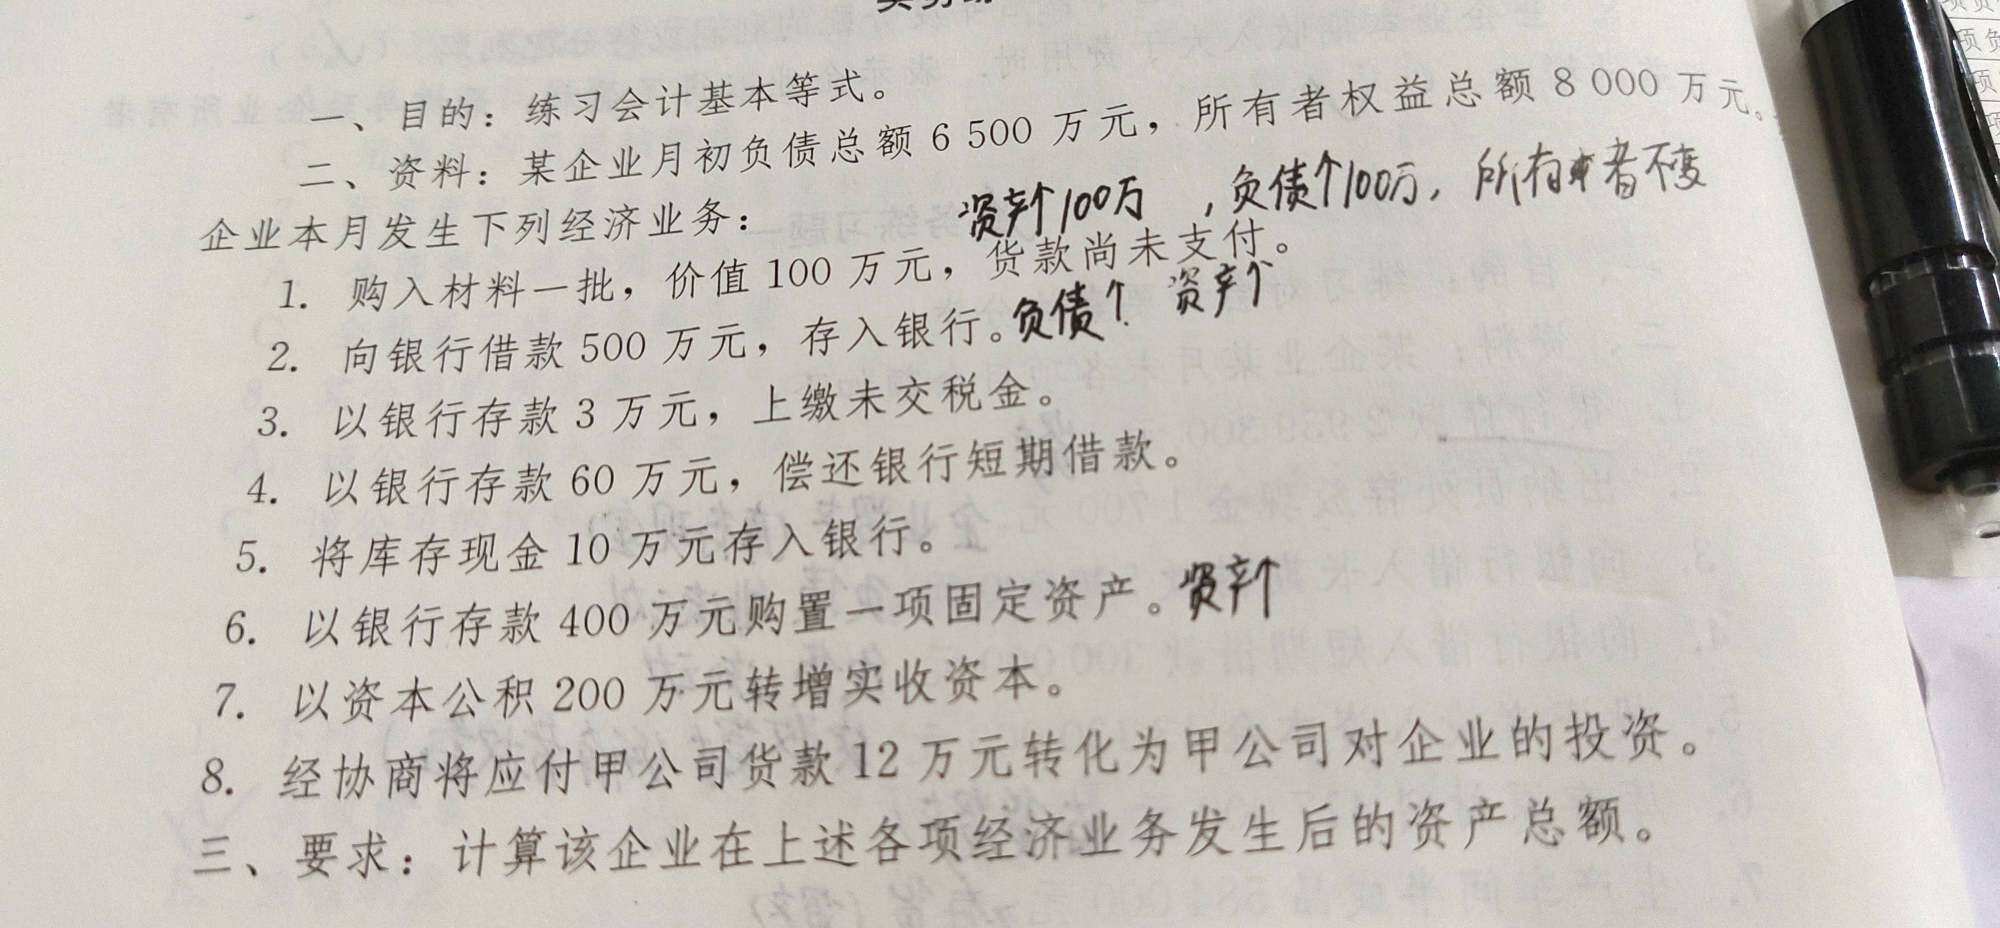 一、目的：练习会计基本等式。
二、资料：某企业月初负债总额 6 500 万元，所有者权益总额 8 000 万元。
企业本月发生下列经济业务：
资产↑100万，负债↑100万，所有者不变
1. 购入材料一批，价值 100 万元，货款尚未支付。
2. 向银行借款 500 万元，存入银行。负债↑ 资产个
3. 以银行存款 3 万元，上缴未交税金。
4. 以银行存款 60 万元，偿还银行短期借款。
5. 将库存现金 10 万元存入银行。
6. 以银行存款 400 万元购置一项固定资产。资产个
7. 以资本公积 200 万元转增实收资本。
8. 经协商将应付甲公司货款 12 万元转化为甲公司对企业的投资。
三、要求：计算该企业在上述各项经济业务发生后的资产总额。